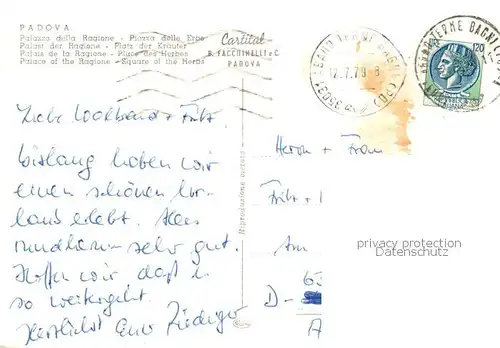 PADOVA
Palazzo della Ragione - Piazza delle Erbe
Palast der Ragione - Platz der Kräuter
Palais de la Ragione - Place des Herbes
Palace of the Ragione - Square of the Herbs
Cartital
G. FACCHINELLI & C
PADOVA
35031 ABANO TERME BAGNI (PD)
12.7.79
TERME BAGNI
120
Riproduzione vietata
Liebe + Fritz
Bislang haben wir
einen schönen Ur-
laub erlebt. Alles
rundherum sehr gut.
Hoffen wir daß es
so weitergeht.
Herzlichst Eure
Herrn + Frau
Fritz +
Am
D -
privacy protection
Datenschutz